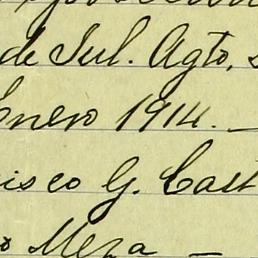 de Jul. Agto,
Enero 1914. —
isco G. Cast
o Meza —